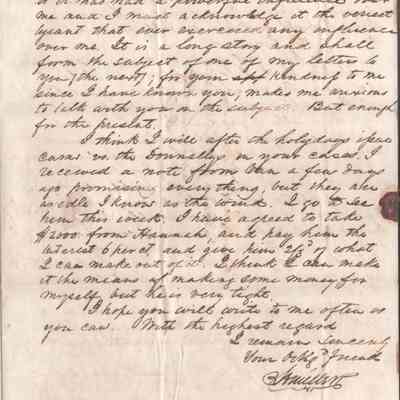 me and I must acknowledge it the veriest
tyrant that ever exercised any influence
over me. It is a long story and shall
form the subject of one of my letters to
you, (the next); for your kindness to me
since I have known you, makes me anxious
to talk with you on the subject. But enough
for the present.
I think I will after the holydays
vs. the Donnellys in your cases. I
received a note from a few days
ago promising everything, but they are
as idle I know as the wind. I go to see
him this week. I have agreed to take
$2000 from Hannah, and pay him the
interest 6 per ct and give him 2/3ds of what
I can make out of it. I think I can make
it the means of making some money for
myself, but he is very tight
I hope you will write to me often as
you can. With the highest regard
I remain Sincerely
Your Oblgd Friend